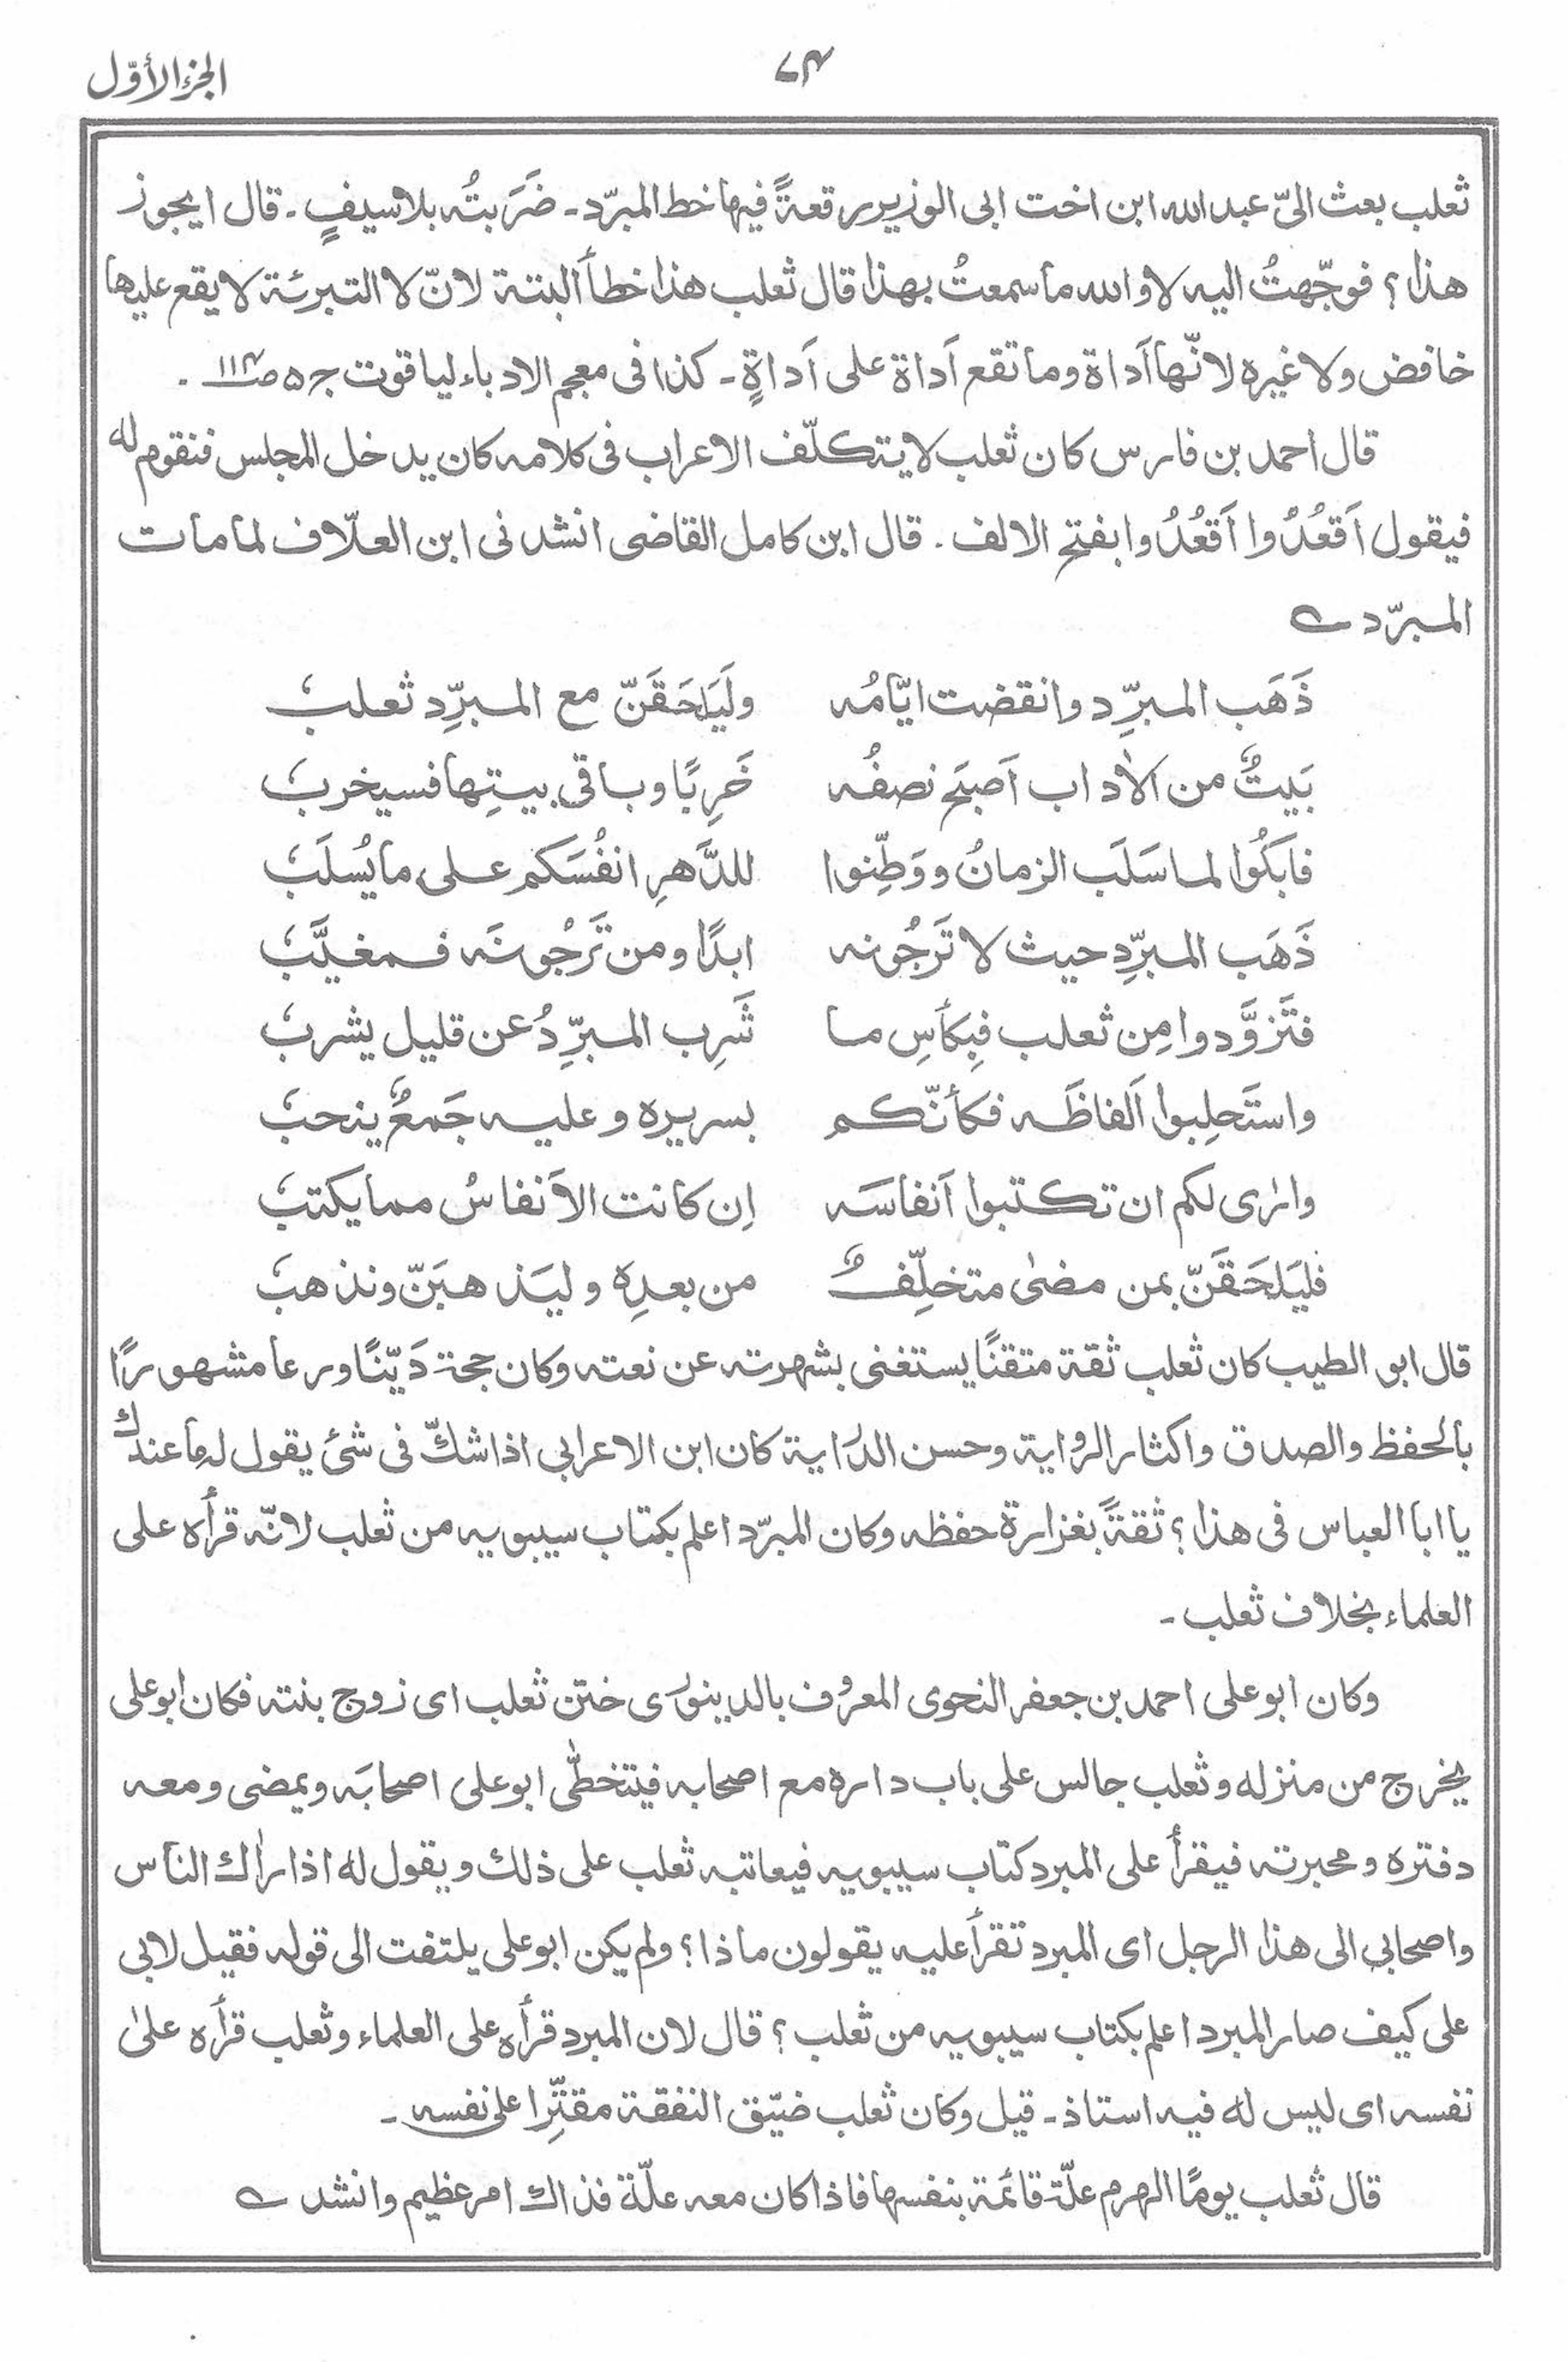 الجزء الأوّل
٧٤
ثعلب بعث الىّ عبد الله ابن اخت ابى الوزير رقعةً فيها خط المبرّد ـ ضَرَبتُه بلا سيفٍ ـ قال ايجوز
هذا؟ فوجّهتُ اليه لا والله ما سمعتُ بهذا قال ثعلب هذا خطأ البتة لانّ لا التبرئة لا يقع عليها
خافض ولا غيره لانّها اَداة وما تقع اَداة على اَداةٍ ـ كذا فى معجم الادباء لياقوت ج ٥ ص ١١٤ ـ
قال احمد بن فارس كان ثعلب لا يتكلّف الاعراب فى كلامه كان يدخل المجلس فنقوم له
فيقول اَقعُدُوا اَقعُدُوا بفتح الالف ـ قال ابن كامل القاضى انشدنى ابن العلّاف لما مات
المبرّد ؎
ذَهَب المبرِّد وانقضت ايّامُه وليَلحَقَنّ مع المبرِّد ثعلبُ
بَيتٌ من الاٰداب اَصبَح نصفُه خَرِبًا وباقى بيتِها فسيخربُ
فابكُوا لما سَلَب الزمانُ ووَطِّنوا للدَّهرِ انفُسَكم على ما يُسلَبُ
ذَهَب المبرِّد حيث لا تَرجُونه ابدًا ومن تَرجُونَه فمغيَّبُ
فتَزوَّدوا مِن ثعلب فبِكأسِ ما شَرِب المبرِّدُ عن قليل يشربُ
واستَحلِبوا اَلفاظَه فكأنّكم بسريره وعليه جَمعٌ ينحبُ
وارٰى لكم ان تكتبوا اَنفاسَه اِن كانت الاَنفاسُ مما يكتبُ
فليَلحَقَنّ بمن مضىٰ متخلِّفٌ من بعدِه وليَذهبَنّ ونذهبُ
قال ابو الطيب كان ثعلب ثقة متقنًا يستغنى بشهرته عن نعته وكان حجة دَيّنًا ورعا مشهورًا
بالحفظ والصدق واكثار الرواية وحسن الدراية كان ابن الاعرابى اذا شكّ فى شئ يقول له ما عندك
يا ابا العباس فى هذا؟ ثقةً بغزارة حفظه وكان المبرّد اعلم بكتاب سيبويه من ثعلب لانّه قرأه على
العلماء بخلاف ثعلب ـ
وكان ابو على احمد بن جعفر النحوى المعروف بالدينورى ختن ثعلب اى زوج بنته فكان ابو على
يخرج من منزله وثعلب جالس على باب داره مع اصحابه فيتخطّى ابو على اصحابَه ويمضى ومعه
دفتره ومحبرته فيقرأ على المبرد كتاب سيبويه فيعاتبه ثعلب على ذلك ويقول له اذا رٰاك الناس
واصحابى الى هذا الرجل اى المبرد تقرأ عليه يقولون ماذا؟ ولم يكن ابو على يلتفت الى قوله فقيل لابى
على كيف صار المبرد اعلم بكتاب سيبويه من ثعلب؟ قال لان المبرد قرأه على العلماء وثعلب قرأه علىٰ
نفسه اى ليس له فيه استاذ ـ قيل وكان ثعلب ضيّق النفقة مقتِّرا على نفسه ـ
قال ثعلب يومًا الهرم علّة قائمة بنفسها فاذا كان معه علّة فذاك امر عظيم وانشد ؎